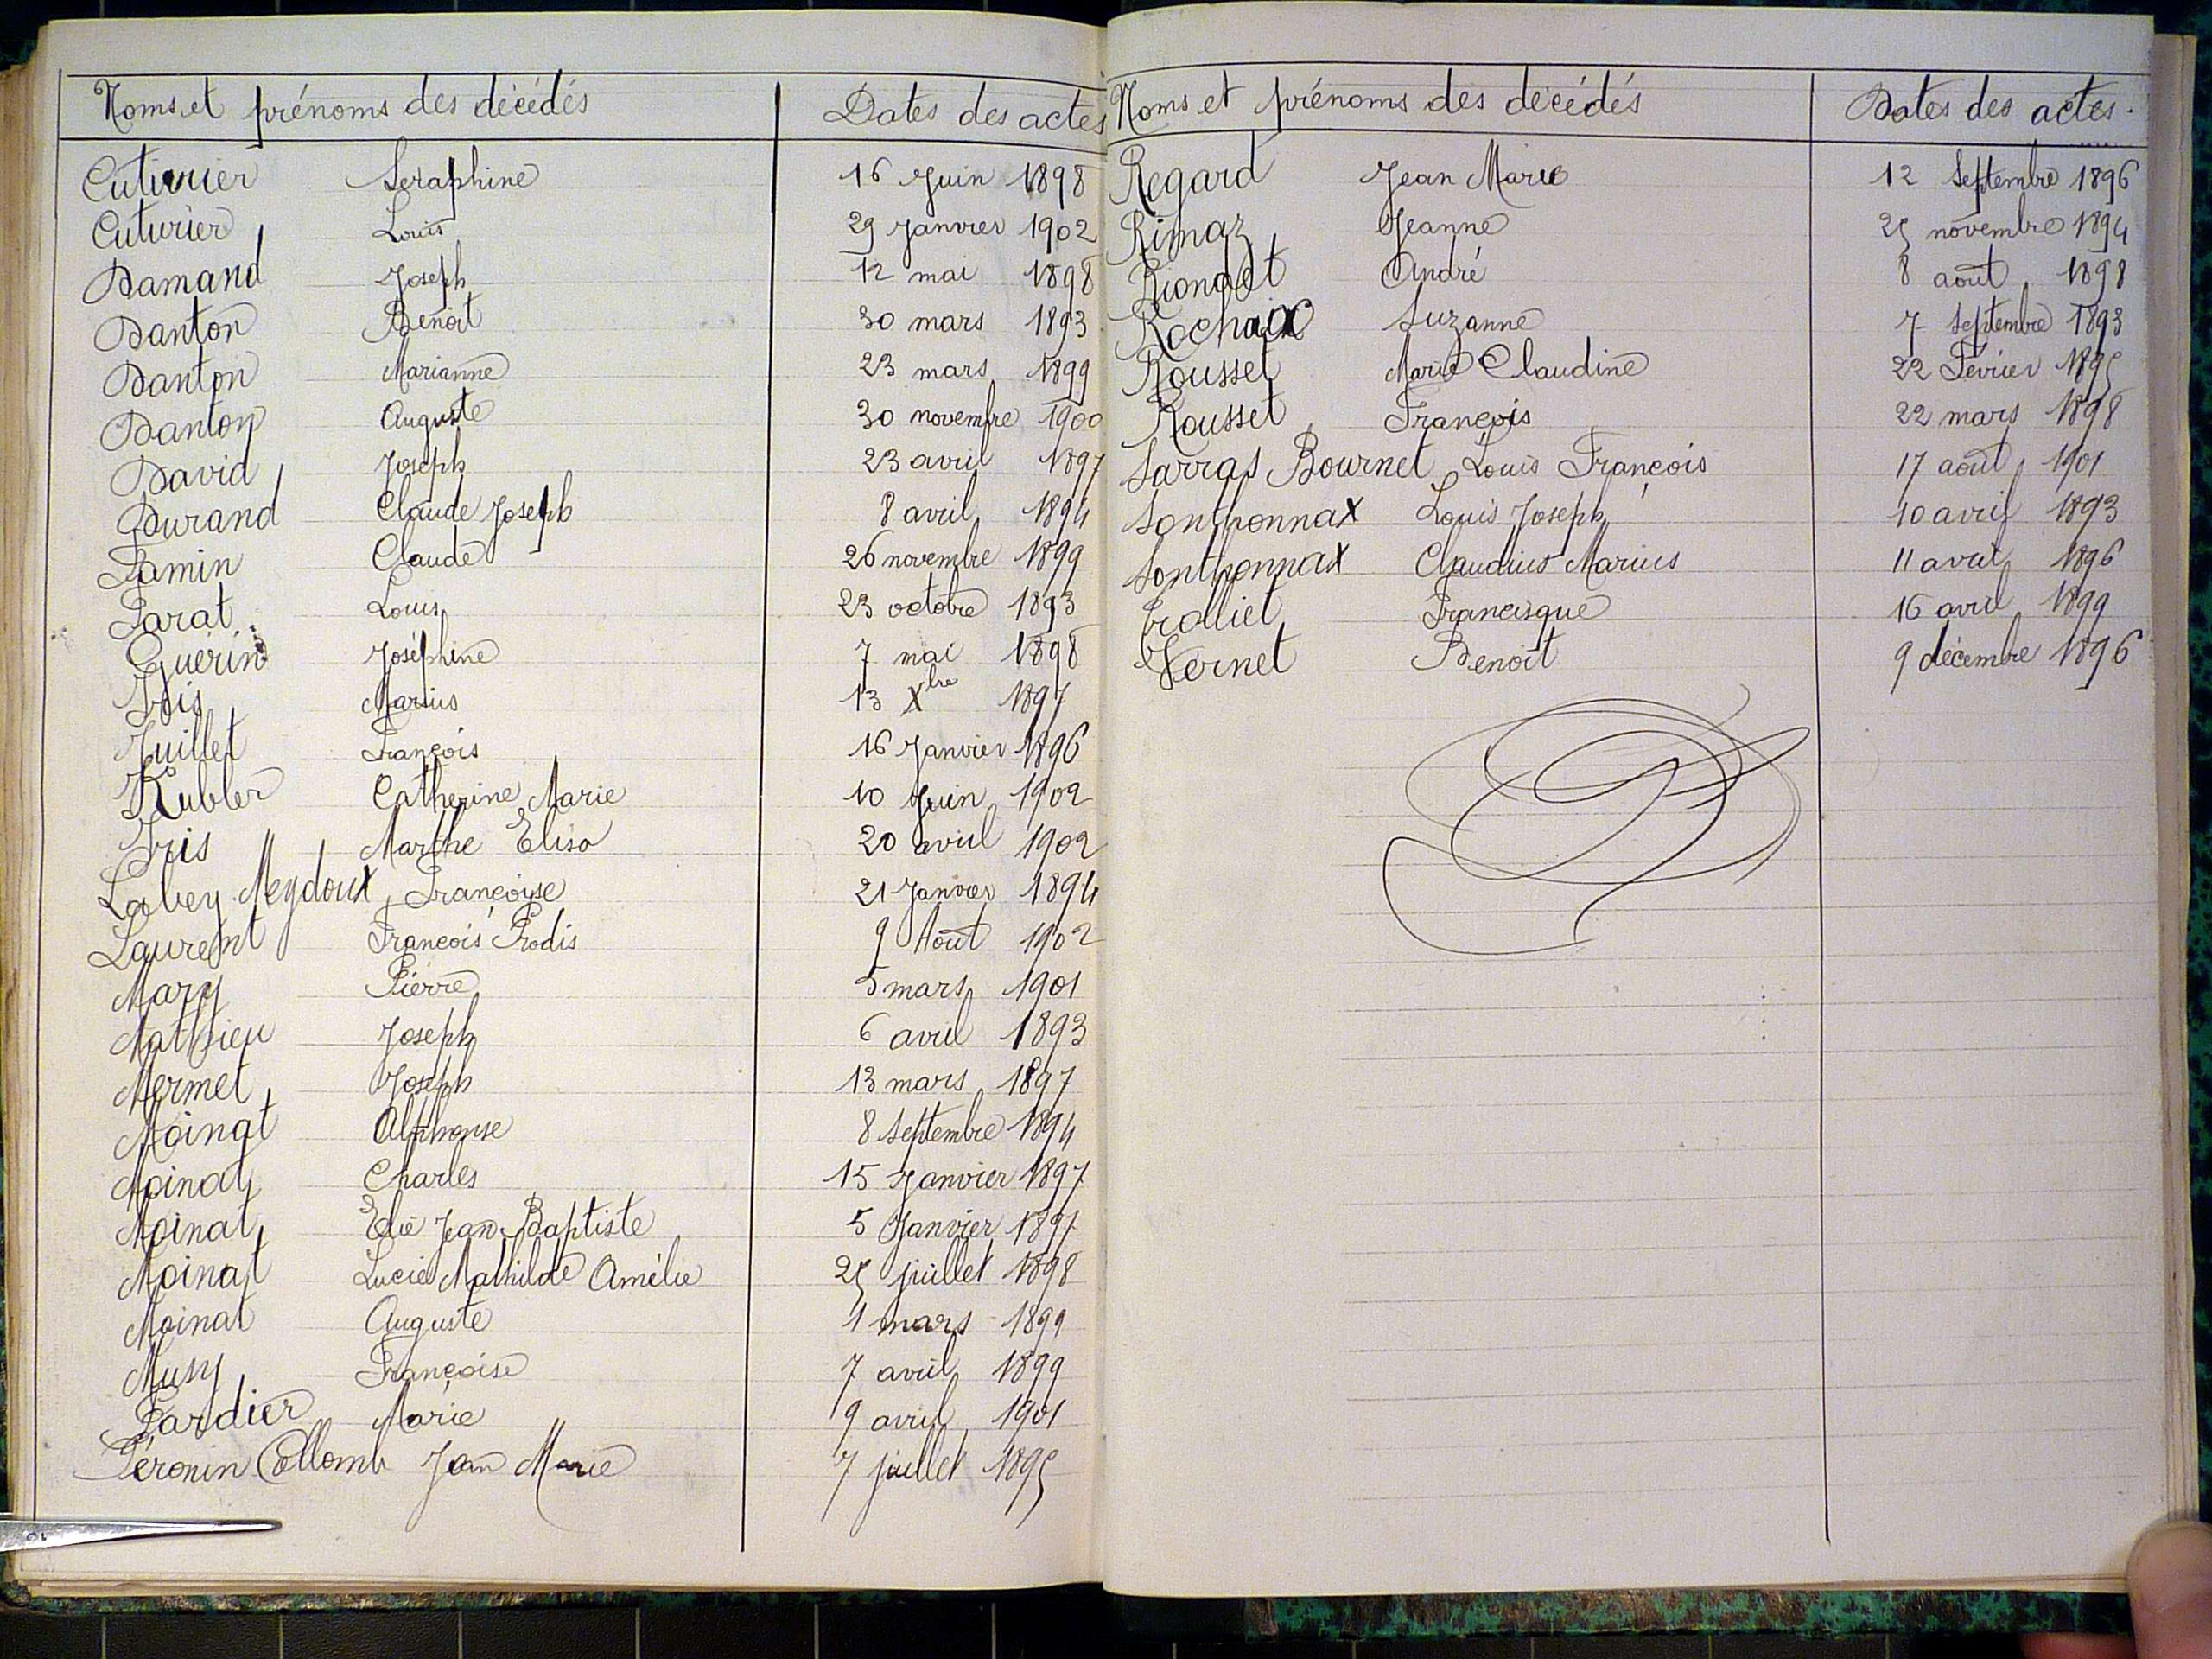 Noms et prénoms des décédés Dates des actes
Cuturier Seraphine 16 Juin 1898
Cuturier Louis 29 Janvier 1902
Damand Joseph 12 mai 1898
Danton Benoit 30 mars 1893
Danton Marianne 23 mars 1899
Danton Auguste 30 novembre 1900
David Joseph 23 avril 1897
Durand Claude Joseph 8 avril 1894
Famin Claude 26 novembre 1899
Farat Louis 23 octobre 1893
Guérin Joséphine 7 mai 1898
Marius 13 Xbre 1897
Juillet François 16 Janvier 1896
Kubler Catherine Marie 10 Juin 1902
Marthe Elisa 20 avril 1902
Labey Meydoux Françoise 21 Janvier 1894
Laurent François 9 Août 1902
Mary Pierre 5 mars 1901
Mathieu Joseph 6 avril 1893
Mermet Joseph 13 mars 1897
Moinat Alphonse 8 Septembre 1894
Moinat Charles 15 Janvier 1897
Moinat Elie Jean Baptiste 5 Janvier 1897
Moinat Lucie Mathilde Amélie 25 juillet 1898
Moinat Auguste 1 mars 1899
Musy Françoise 7 avril 1899
Pardier Marie 9 avril 1901
Péronin Collomb Jean Marie 7 juillet 1895
Noms et prénoms des décédés Dates des actes.
Regard Jean Marie 12 Septembre 1896
Rimaz Jeanne 25 novembre 1894
Riondet André 8 août 1898
Rochaix Suzanne 7 Septembre 1893
Rousset Marie Claudine 22 Février 1895
Rousset François 22 mars 1898
Sarras Bournet Louis François 17 août 1901
Sonthonnax Louis Joseph 10 avril 1893
Sonthonnax Claudius Marius 11 avril 1896
Trolliet Francisque 16 avril 1899
Vernet Benoît 9 décembre 1896